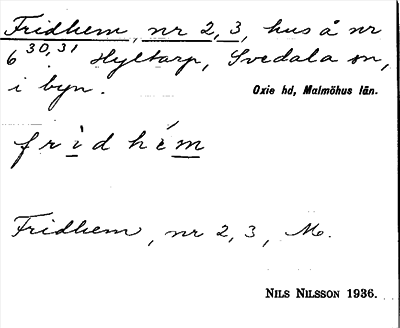 Fridhem, nr 2, 3, hus å nr
6 30, 31 Hyltarp, Svedala sn,
i byn.
Oxie hd, Malmöhus län.
frìdhém
Fridhem, nr 2, 3, Mo.
NILS NILSSON 1936.